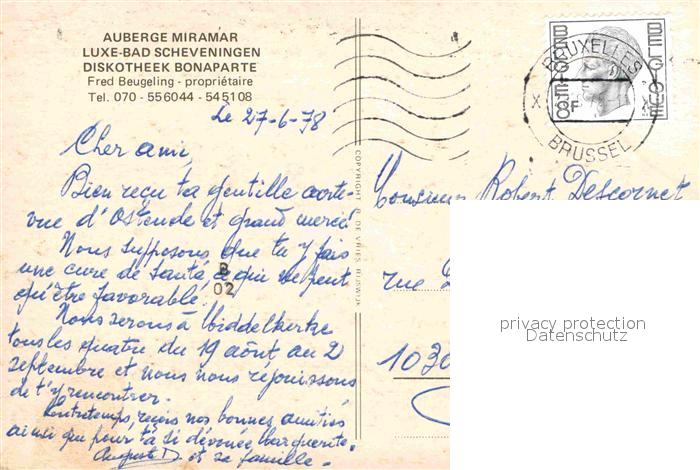 AUBERGE MIRAMAR
LUXE-BAD SCHEVENINGEN
DISKOTHEEK BONAPARTE
Fred Beugeling - propriétaire
Tel. 070 - 556044 - 545108
Le 27-6-78
Cher ami,
Bien reçu ta gentille carte-
vue d'Ostende et grand merci!
Nous supposons que tu y fais
une cure de santé, ce qui ne peut
qu'être favorable.
Nous serons à Middelkerke
tous les quatre du 19 août au 2
septembre et nous nous réjouissons
de t'y rencontrer.
Contretemps, reçois nos bonnes amitiés
ainsi que pour ta si dévouée Marguerite.
Auguste D et sa famille.
B
02
COPYRIGHT R. DE VRIES RIJSWIJK
BELGIE-BELGIQUE
8F
BRUXELLES
X X
BRUSSEL
Monsieur Robert Descornet
rue
1030
privacy protection
Datenschutz